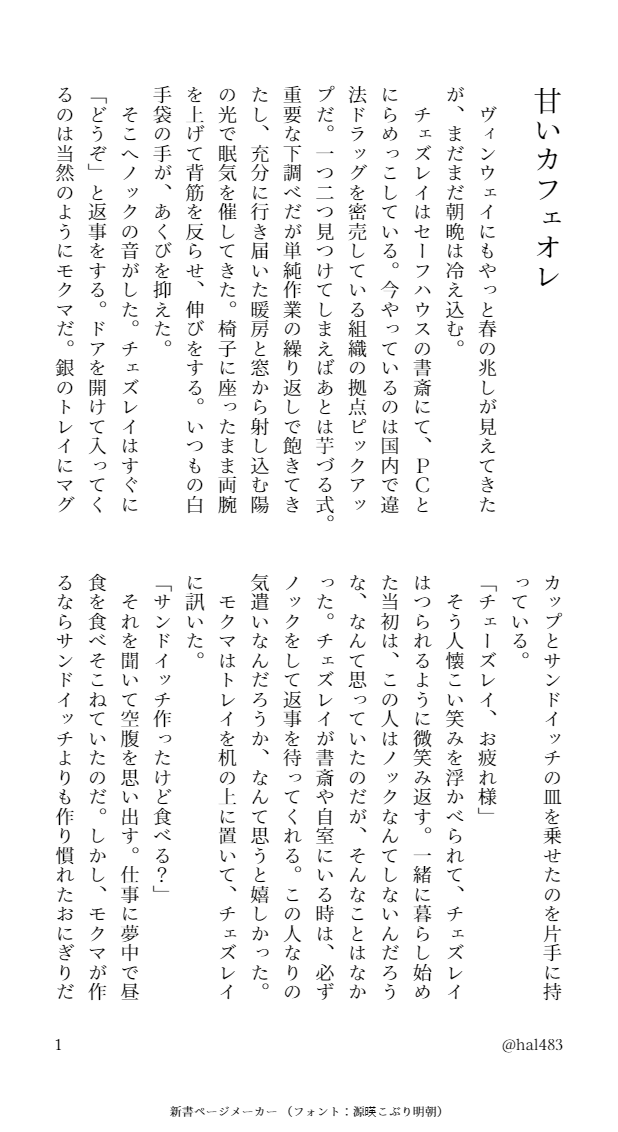 甘いカフェオレ
　ヴィンウェイにもやっと春の兆しが見えてきた
が、まだまだ朝晩は冷え込む。
　チェズレイはセーフハウスの書斎にて、ＰＣと
にらめっこしている。今やっているのは国内で違
法ドラッグを密売している組織の拠点ピックアッ
プだ。一つ二つ見つけてしまえばあとは芋づる式。
重要な下調べだが単純作業の繰り返しで飽きてき
たし、充分に行き届いた暖房と窓から射し込む陽
の光で眠気を催してきた。椅子に座ったまま両腕
を上げて背筋を反らせ、伸びをする。いつもの白
手袋の手が、あくびを抑えた。
　そこへノックの音がした。チェズレイはすぐに
「どうぞ」と返事をする。ドアを開けて入ってく
るのは当然のようにモクマだ。銀のトレイにマグ
カップとサンドイッチの皿を乗せたのを片手に持
っている。
「チェーズレイ、お疲れ様」
　そう人懐こい笑みを浮かべられて、チェズレイ
はつられるように微笑み返す。一緒に暮らし始め
た当初は、この人はノックなんてしないんだろう
な、なんて思っていたのだが、そんなことはなか
った。チェズレイが書斎や自室にいる時は、必ず
ノックをして返事を待ってくれる。この人なりの
気遣いなんだろうか、なんて思うと嬉しかった。
　モクマはトレイを机の上に置いて、チェズレイ
に訊いた。
「サンドイッチ作ったけど食べる？」
　それを聞いて空腹を思い出す。仕事に夢中で昼
食を食べそこねていたのだ。しかし、モクマが作
るならサンドイッチよりも作り慣れたおにぎりだ
1
@hal483
新書ページメーカー（フォント：源暎こぶり明朝）